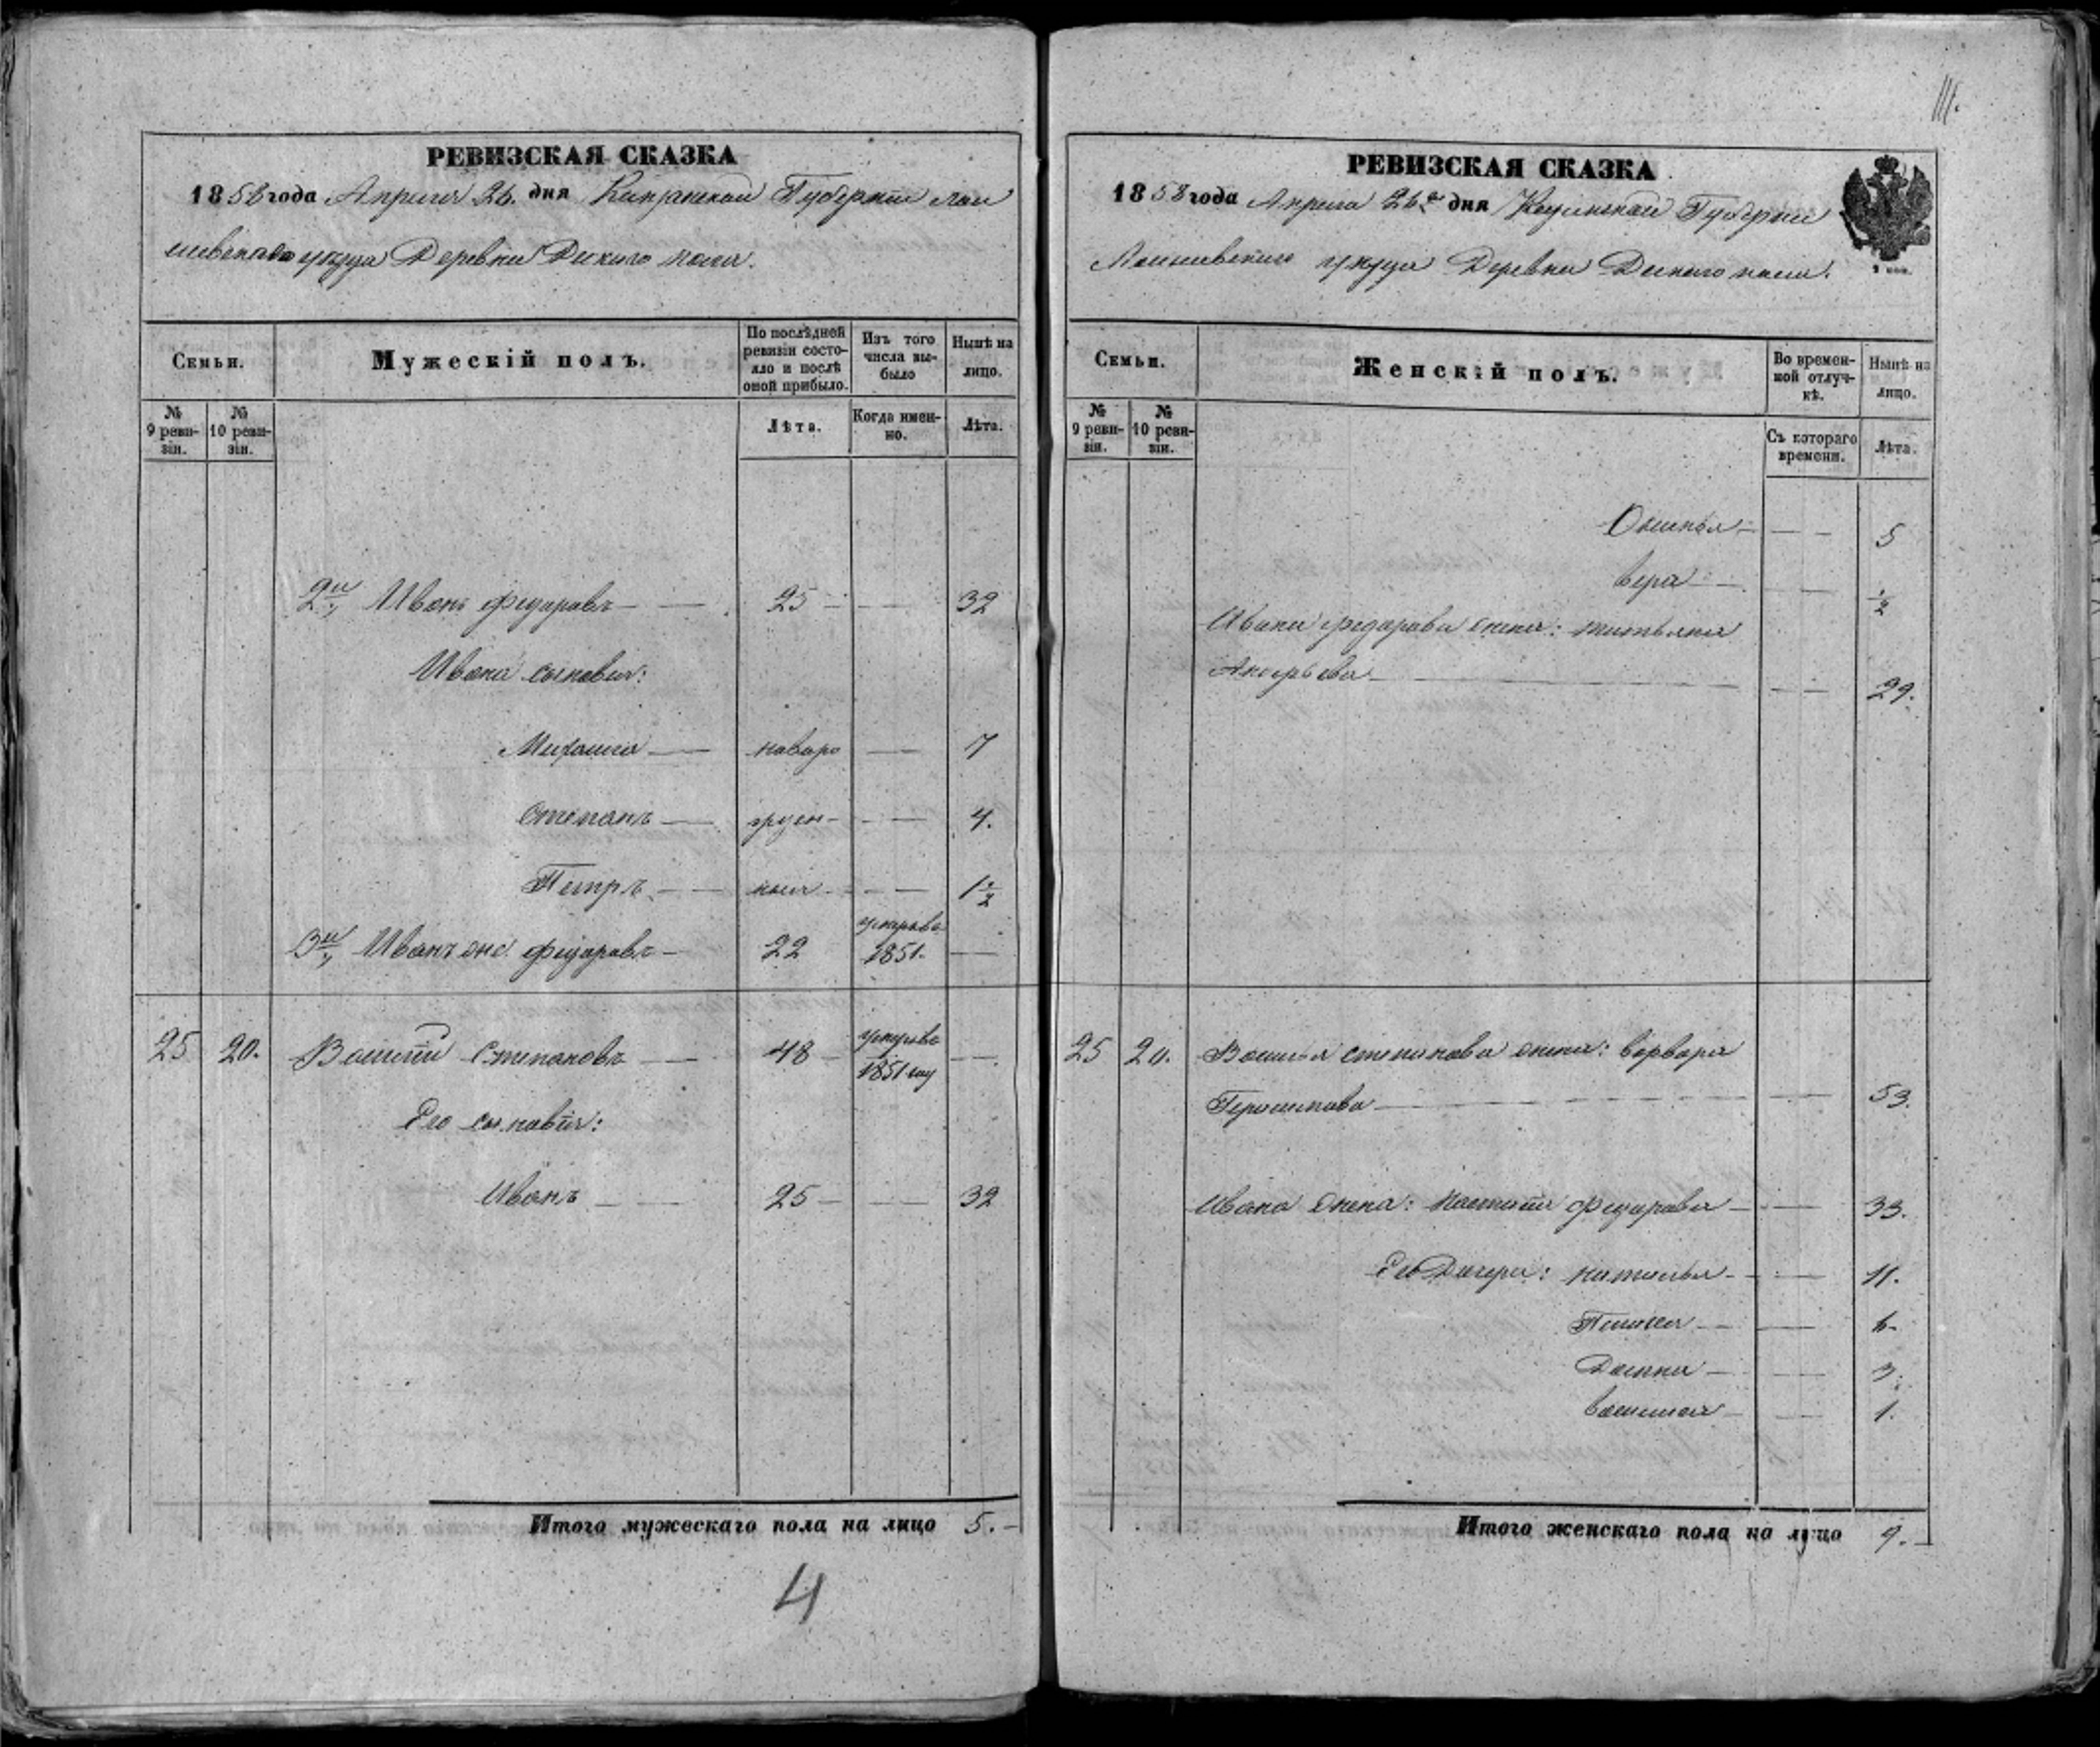 РЕВИЗСКАЯ СКАЗКА
1858 года Апреля 26. дня Казанской Губернии Лаи
шевскаго уезда Деревни Дикого поля.
Семьи.
Мужескій полъ.
По послѣдней ревизіи состояло и послѣ оной прибыло.
Изъ того числа выбыло
Нынѣ на лицо.
№ 9 ревизіи.
№ 10 ревизіи.
Лѣта.
Когда именно.
Лѣта.
2й Иванъ Федаравъ 25 32
Ивана сынавья:
Михаила наваро 7
Степанъ жден 4.
Петръ ныя 1 1/2
3й Иванъ же Федаравъ 22 1851.
25 20. Василий Степановъ 48 1851 году
Его сынавья:
Иванъ 25 32
Итого мужескаго пола на лицо 5.
4
111.
РЕВИЗСКАЯ СКАЗКА
1858 года Апреля 26го дня Казанской Губернии
Лаишевскаго уезда Деревни Дикаго поля.
2 коп.
Семьи.
Женскій полъ.
Во временной отлучкѣ.
Нынѣ на лицо.
№ 9 ревизіи.
№ 10 ревизіи.
Съ котораго времени.
Лѣта.
5
Вера 1/2
Ивана Федарава жена: Татьяна
29.
25 20. Василья Степанова жена: Варвара
Герасимава 53.
Ивана жена: Настасья Федарава 33.
Его Дачери: Наталья 11.
6
3.
Василиса 1.
Итого женскаго пола на лицо 9.